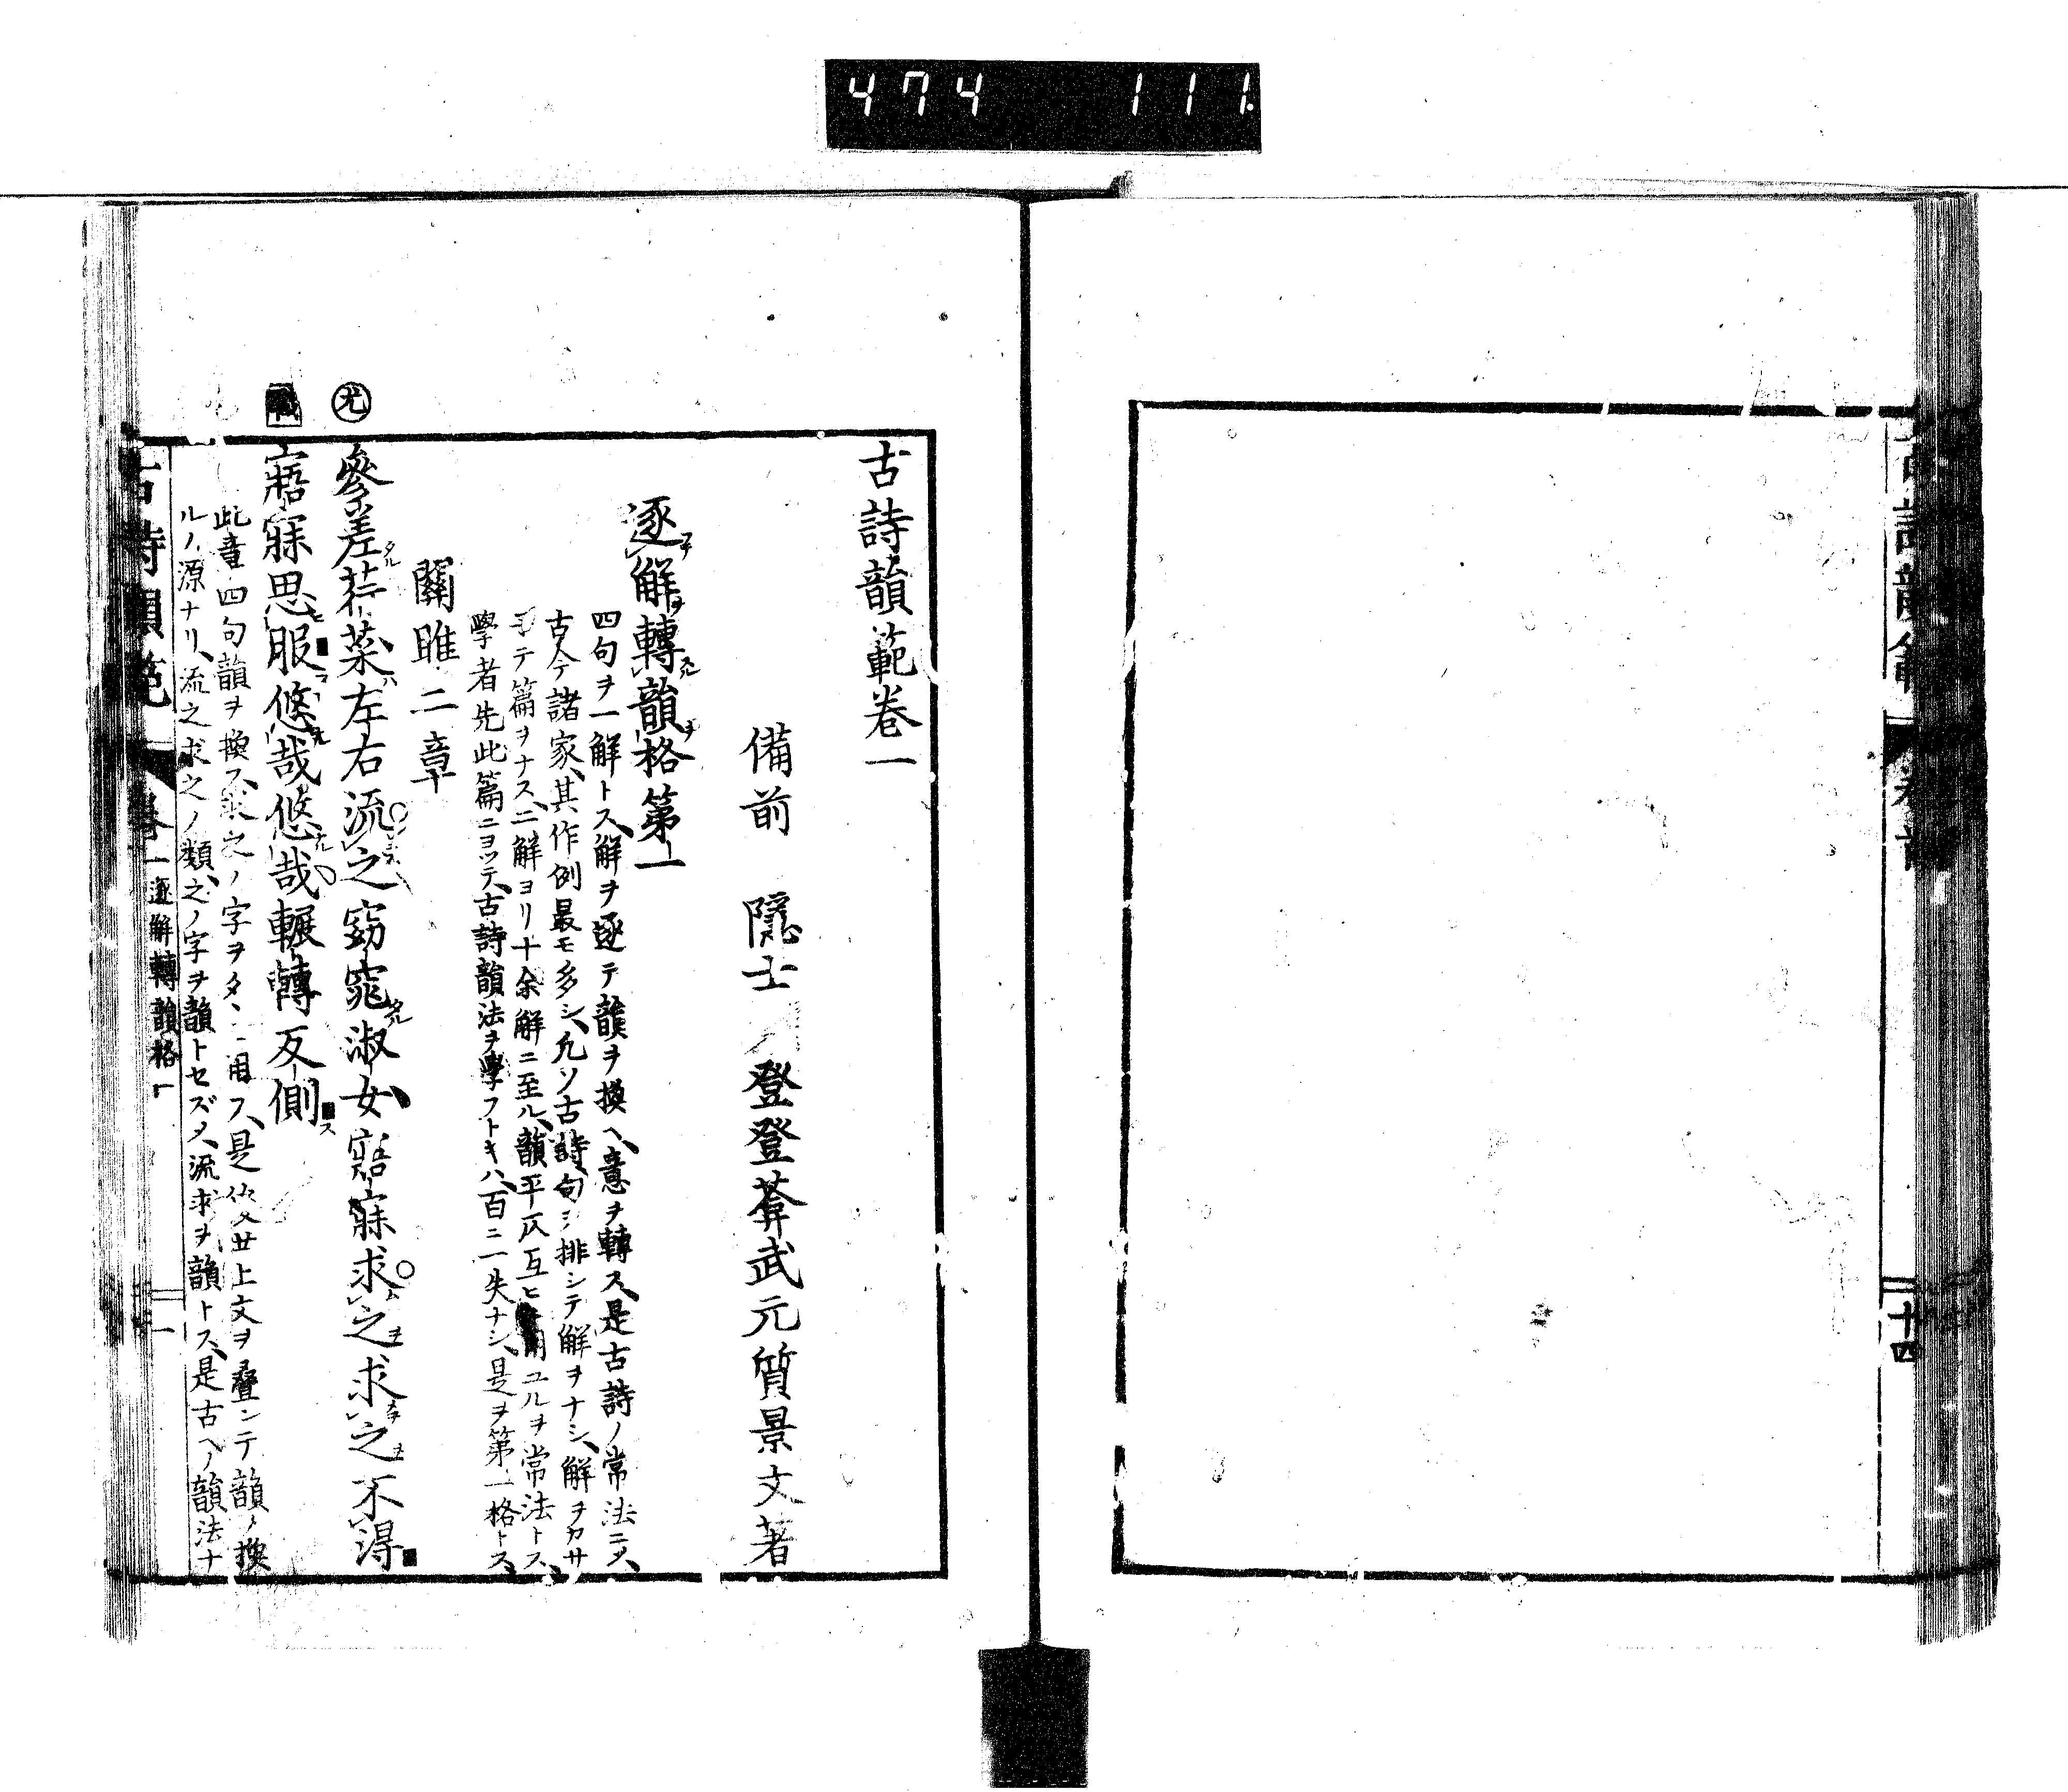 474 111
十四
古詩韻範卷一
備前 隱士 登登葊武元質景文著
逐解轉韻格第一
四句ヲ一解トス、解ヲ逐テ韻ヲ換ヘ、意ヲ轉ス、是古詩ノ常法ニメ、
古今諸家、其作例最モ多シ、凡ソ古詩、句ヲ排シテ解ヲナシ、解ヲカサ
テ篇ヲナス、二解ヨリ十余解ニ至ル、韻平仄互ヒ用ユルヲ常法トス、
學者先此篇ニヨツテ、古詩韻法ヲ學フトキハ、百ニ一失ナシ、是ヲ第一格トス、
關雎二章
尤
參差荇菜左右流之窈窕淑女寤寐求之求之不得
職
寤寐思服悠哉悠哉輾轉反側
此章四句韻ヲ換ス、求之ノ字ヲ用フ、是上文ヲ疊ンテ韻ノ換
ルノ源ナリ、流之求之ノ類、之ノ字ヲ韻トセズメ、流求ヲ韻トス、是古ヘノ韻法ナ
古詩韻範 卷一 逐解轉韻格 一